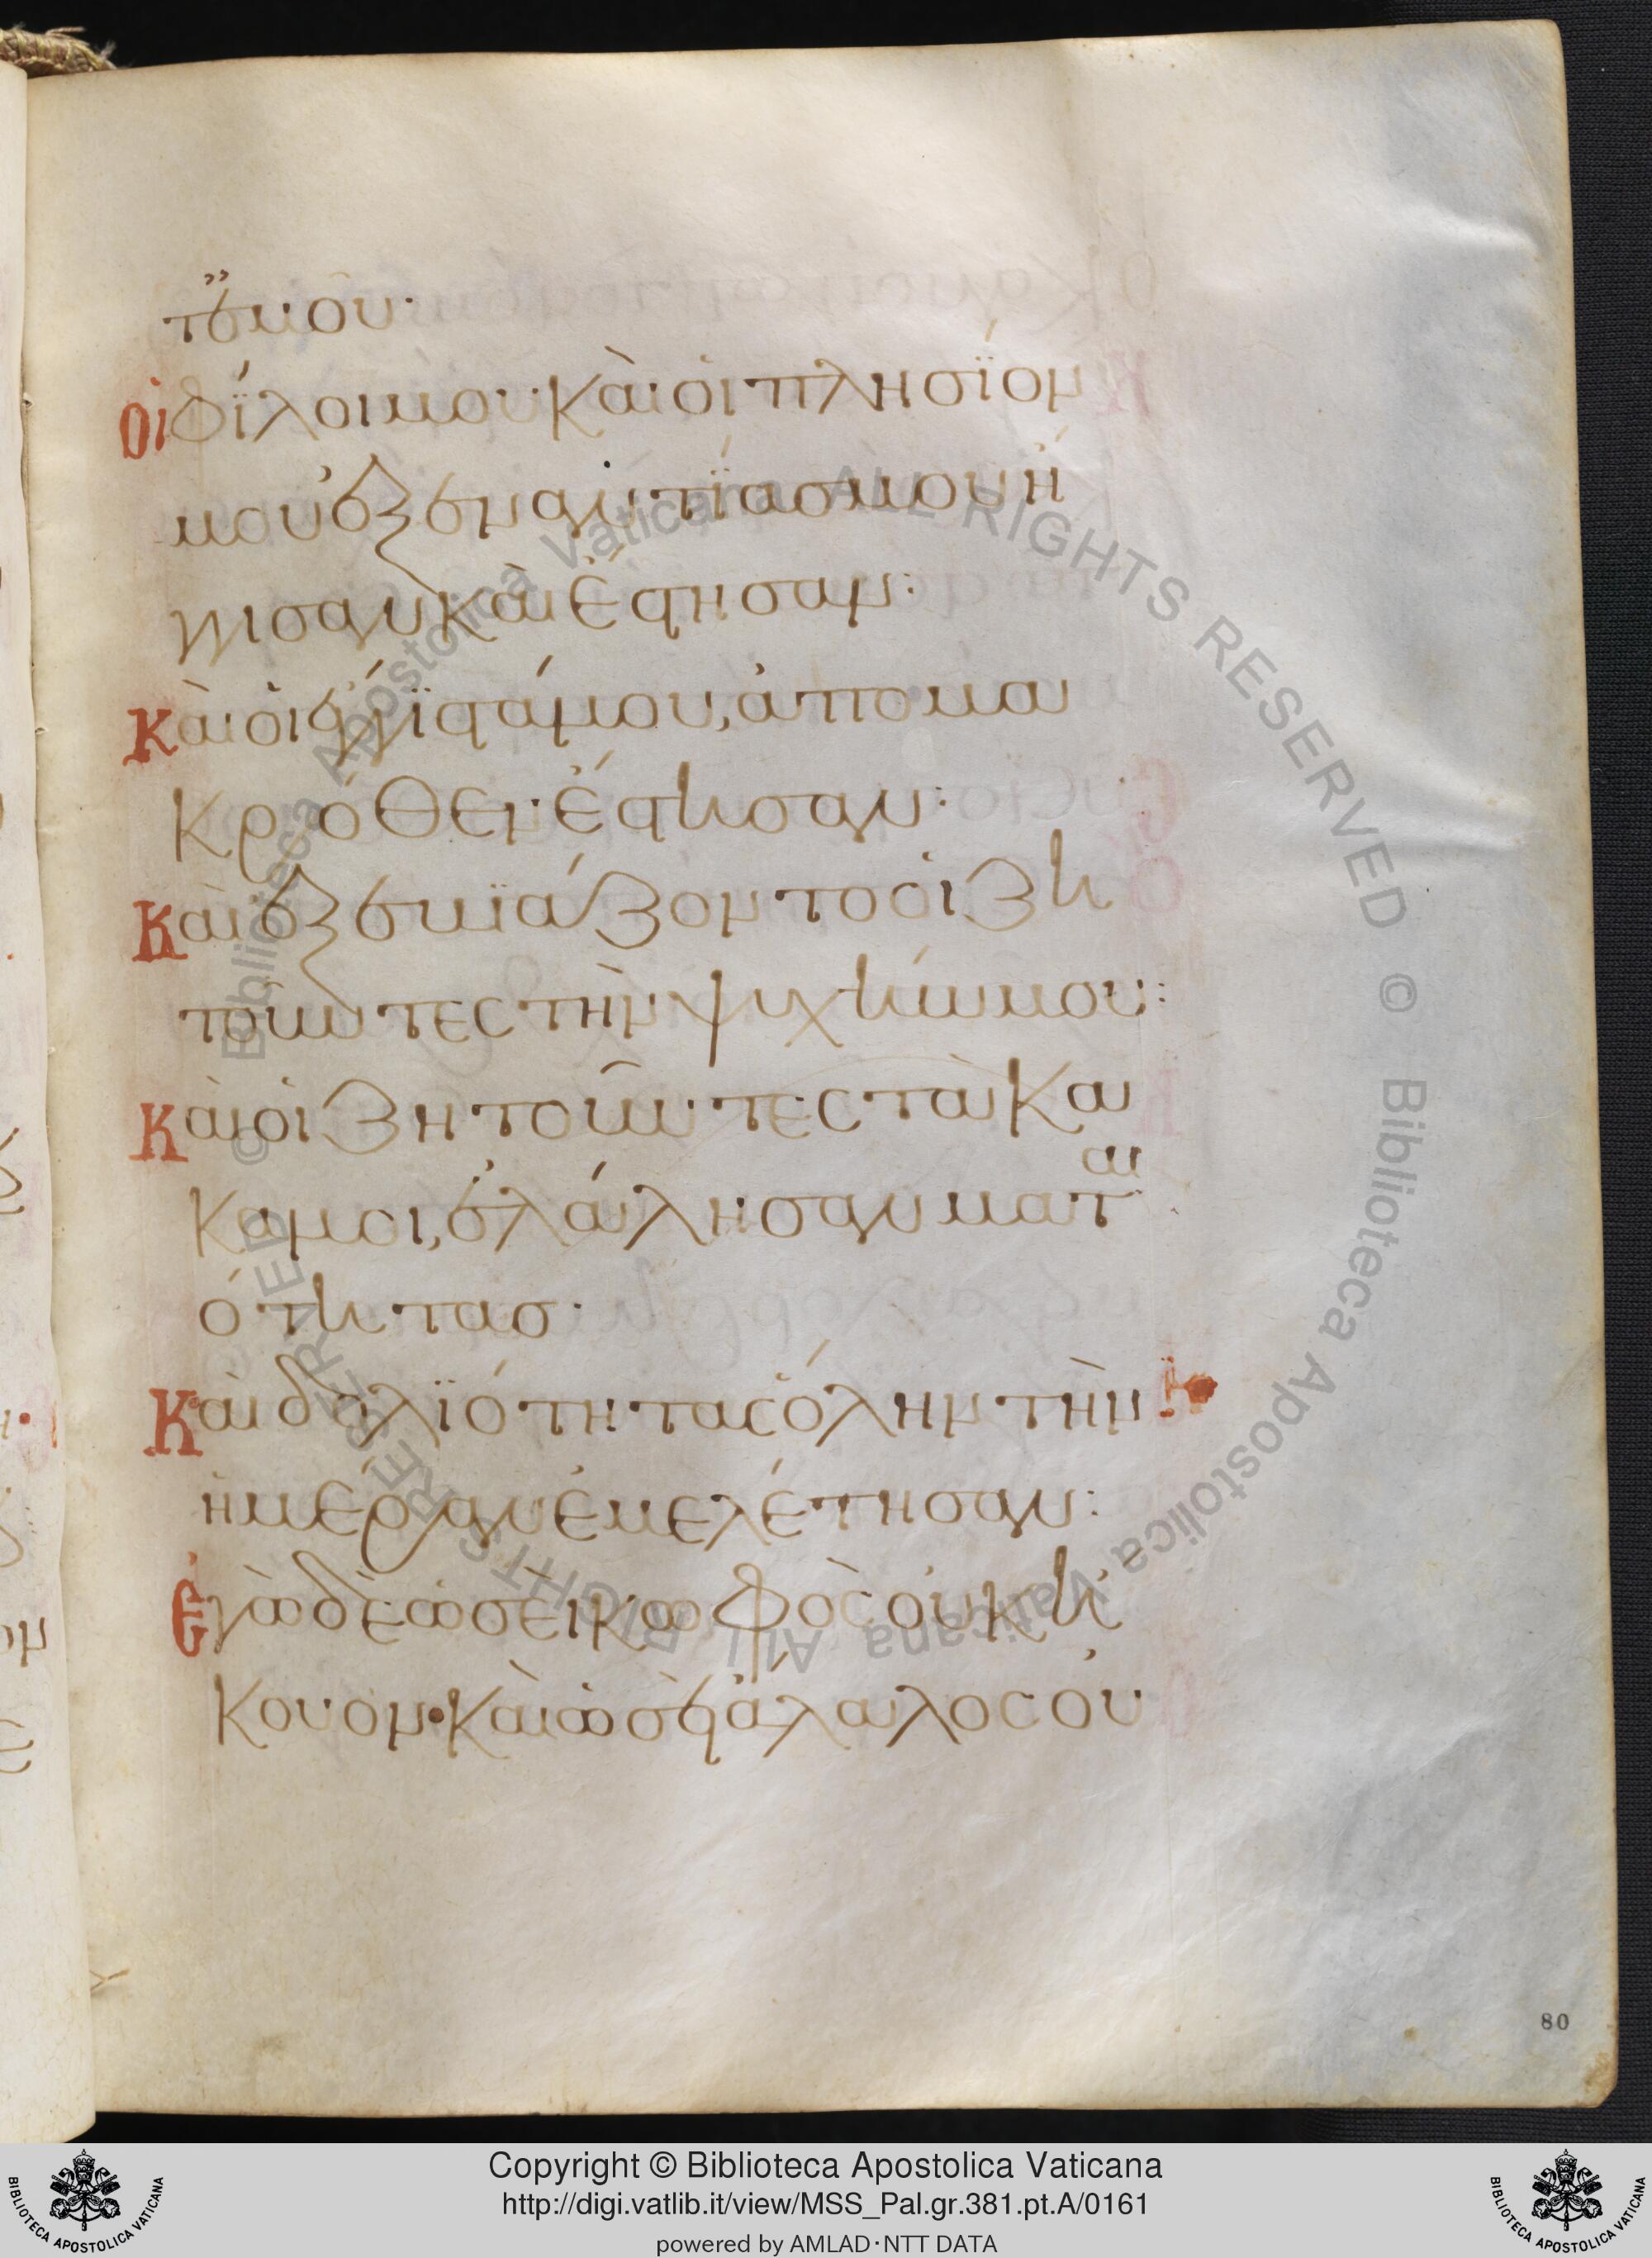 τ᾽ἐμου·
οἱ φίλοι μου· καὶ οἱ πλησίον
μου ἐξ ἐναντίας μου ἤγ
γισαν καὶ ἔστησαν:
Καὶ οἱ ἔγγιστά μου, ἀπο μα
κρόθεν· ἔστησαν:
Καὶ ἐξεβιάζοντο οἱ ζη
τοῦντες τὴν ψυχήν μου:
Καὶ οἱ ζητοῦντες τὰ κα
κά μοι, ἐλάλησαν μαται
ότητας·
Καὶ δολιότητας ὅλην τὴν
ἡμέραν ἐμελέτησαν:
Ἐγὼ δὲ ὡσεὶ κωφὸς οὐκ ἤ
κουον· καὶ ὡσεὶ ἄλαλος οὐ
80
Copyright © Biblioteca Apostolica Vaticana
http://digi.vatlib.it/view/MSS_Pal.gr.381.pt.A/0161
powered by AMLAD·NTT DATA
BIBLIOTECA APOSTOLICA VATICANA
BIBLIOTECA APOSTOLICA VATICANA